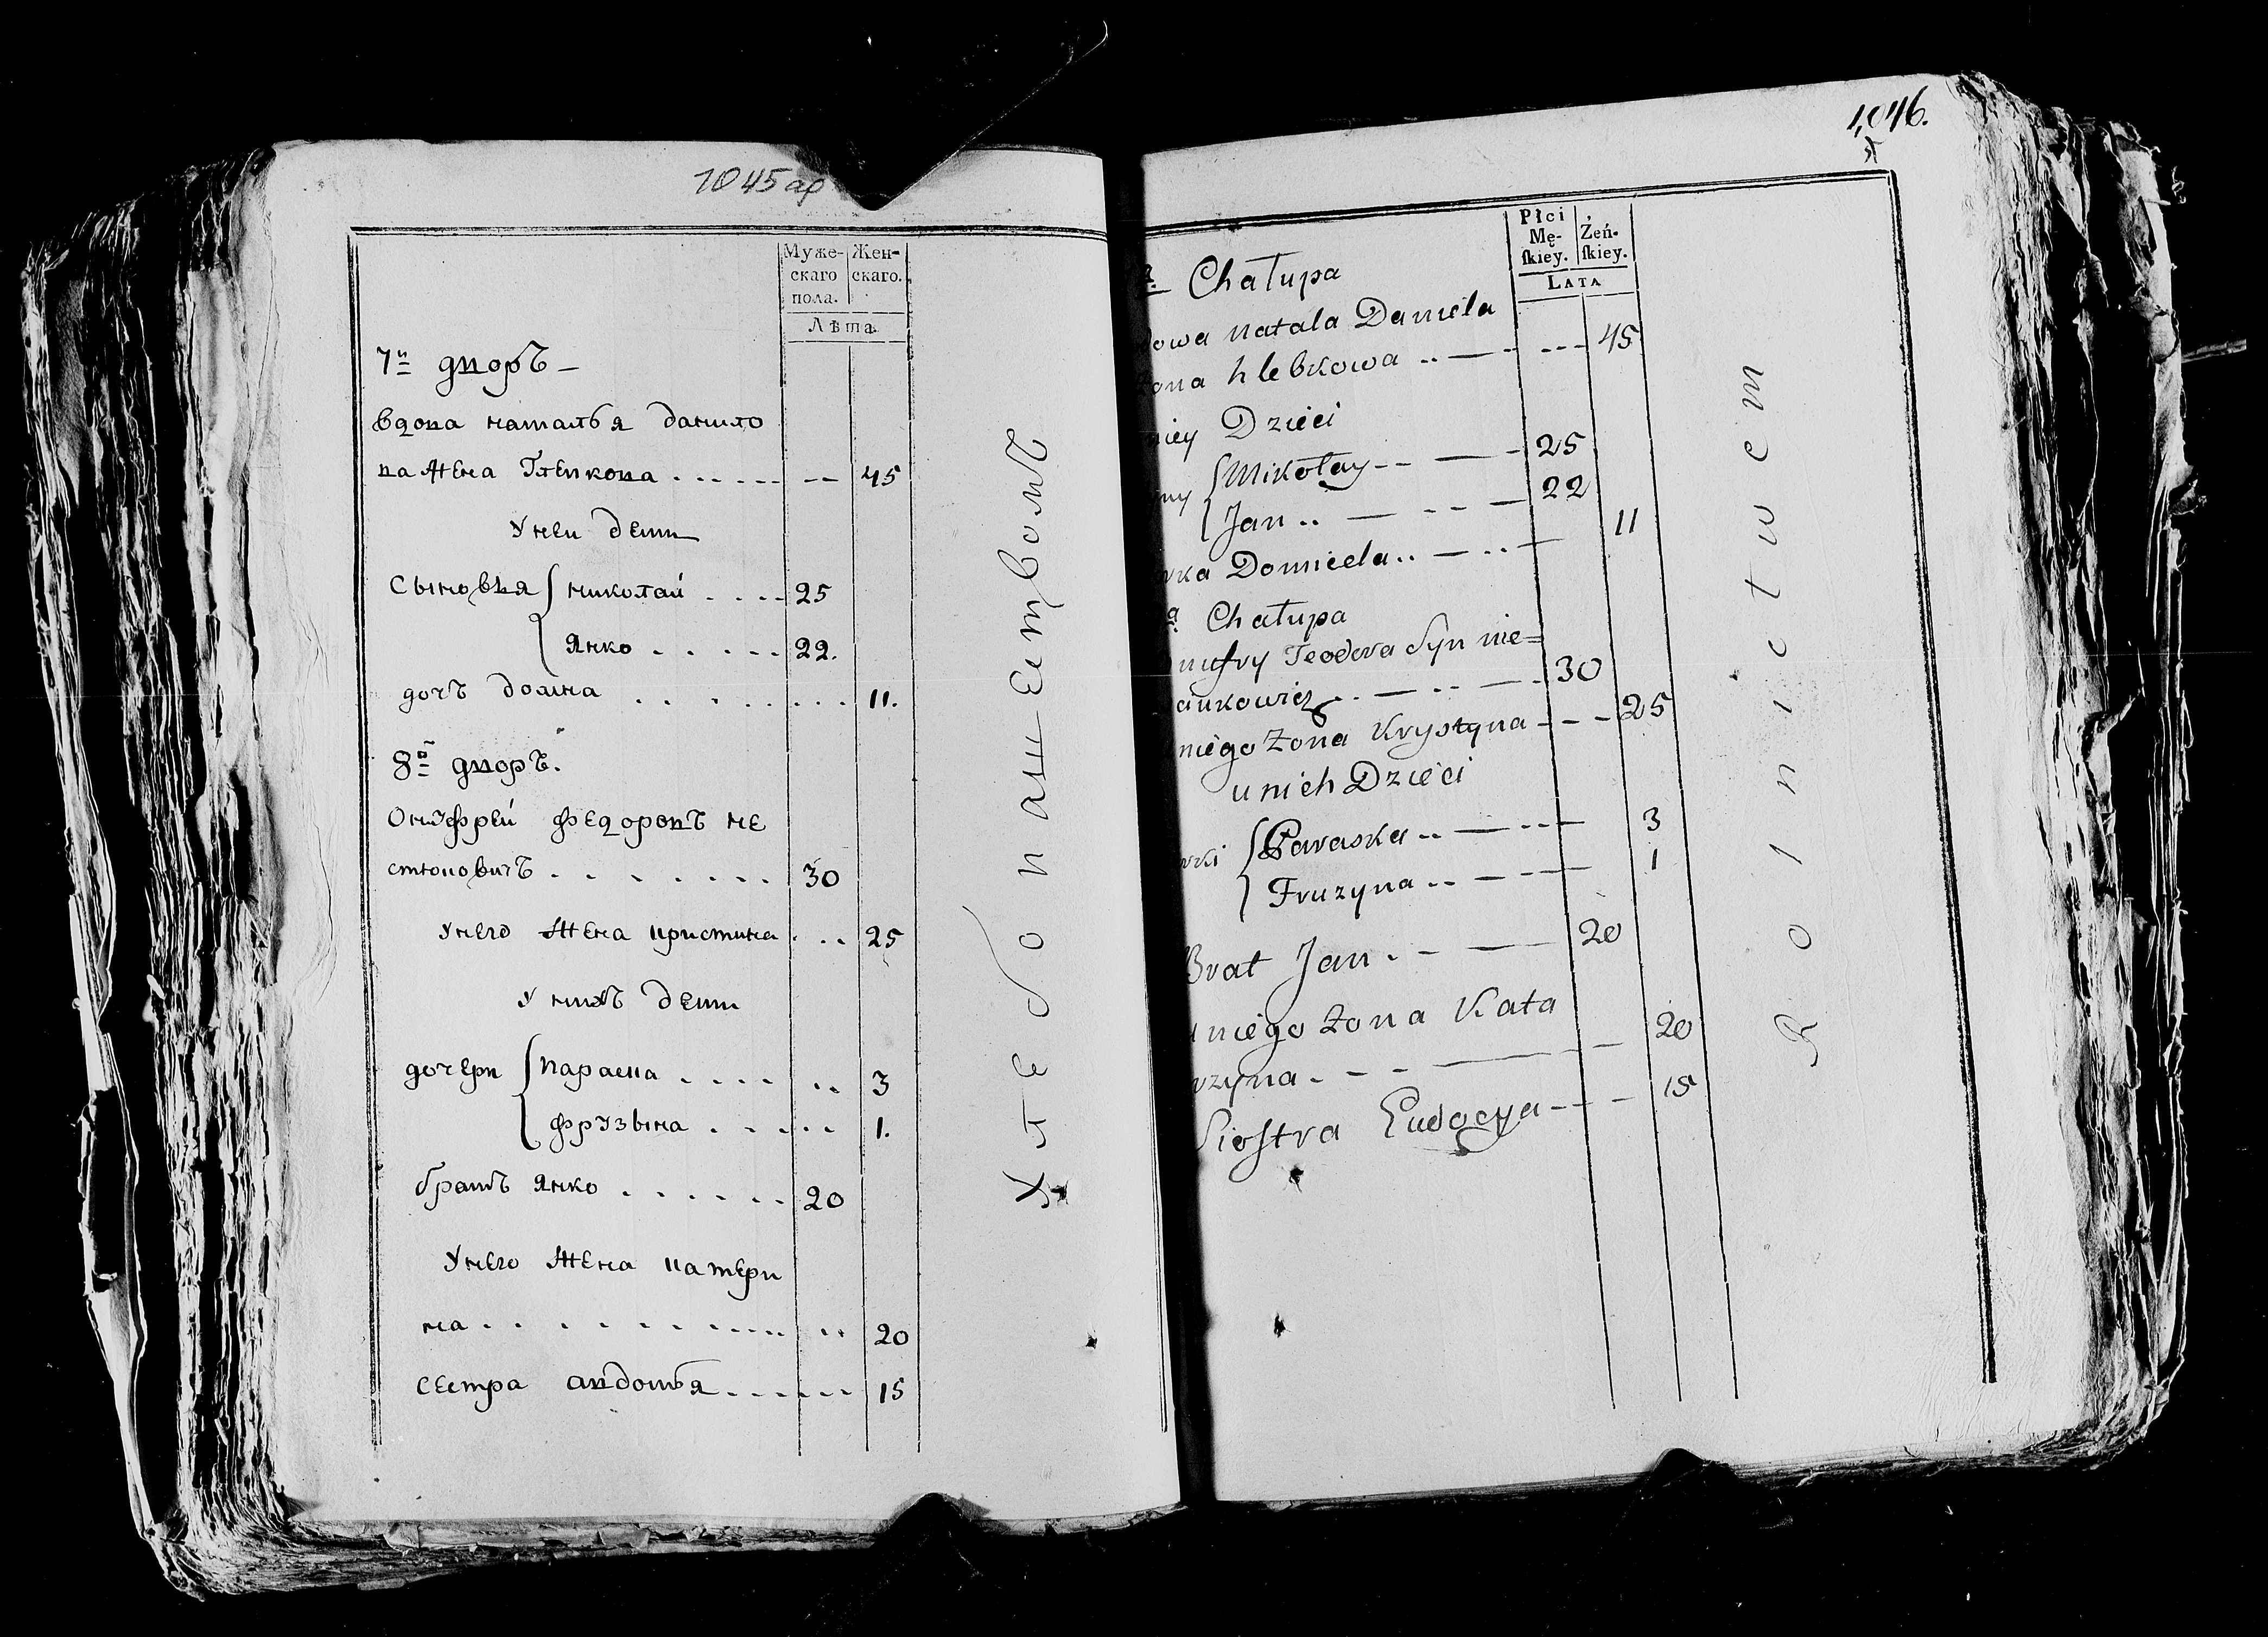 1045 ар
Муже- Жен-
скаго скаго.
пола.
Лѣта
7й дворъ –
вдова наталья данило
ва жена Глебкова . . . . . . -- 45
У неи дети
Сыновья { николай . . . . 25
{ Янко . . . . . 22.
дочъ домна . . . . . . . . . 11.
8й дворъ.
Онуфрей федоровъ не
30
У него жена кристина . . . 25
У нихъ дети
дочери { параска . . . . . . 3
{ фрузына . . . . . . . 1.
братъ Янко . . . . . . 20
У него жена катери
на . . . . . . . . . . . . . 20
сестра авдотья . . . . . . . 15
Хлебопашеством
1,046.
Płci Żeń-
Mę- ſkiey.
ſkiey.
LATA
a Chałupa
dowa natala Daniela
żona hlebkowa .. — - --- 45
niey Dzieci
ny { Mikołay -- — - 25
{ Jan .. — -- — 22
rka Domicela .. — .. — 11
a Chałupa
nufry Teodora Syn nie=
ankowicz .. — .. — 30
niego żona Krystyna - - - 25
u nich Dzieci
rki { Paraska .. — .. — 3
{ Fruzyna .. — - - — 1
Brat Jan . - — 20
u niego żona Kata
rzyna . - - — — 20
Siostra Eudocya - - - 15
Rolnictwem